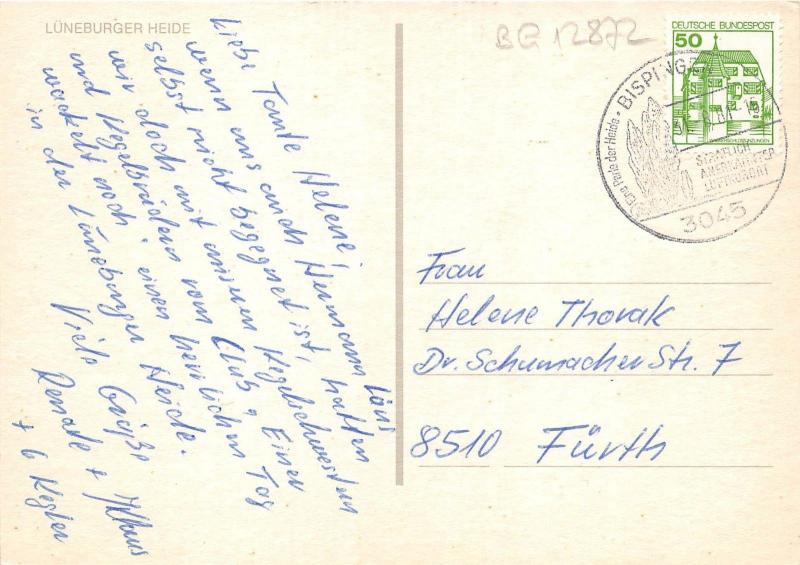 LÜNEBURGER HEIDE
BG 12872
DEUTSCHE BUNDESPOST
50
BISPINGEN
Eine Perle der Heide
STAATLICH
ANERKANNTER
LUFTKURORT
3045
Liebe Tante Helene!
wenn uns auch Hermann Löns
selbst nicht begegnet ist, hatten
wir doch mit unseren Kegelschwestern
und Kegelbrüdern vom Club „Einer
wackelt noch" einen herrlichen Tag
in der Lüneburger Heide.
Viele Grüße
Renate +
+ 6 Kegler
Frau
Helene Thorak
Dr. Schumacher Str. 7
8510 Fürth